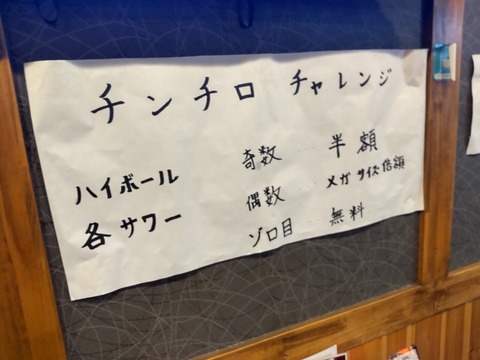 チンチロ チャレンジ
ハイボール
各サワー
奇数 半額
偶数 メガサイズ倍額
ゾロ目 無料